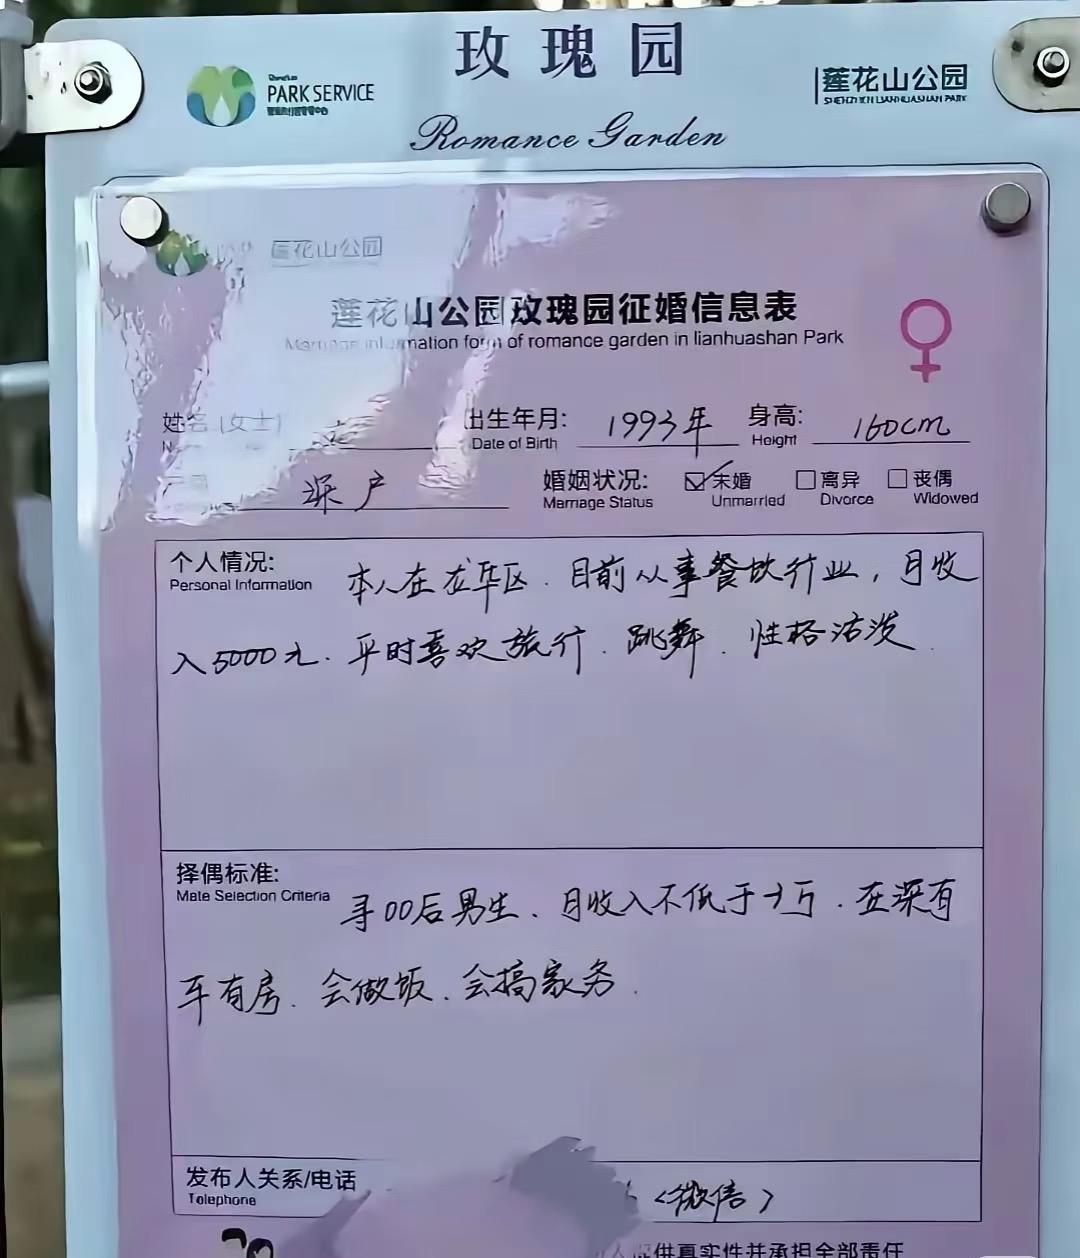 玫瑰园
PARK SERVICE
莲花山公园
SHENZHEN LIANHUASHAN PARK
Romance Garden
莲花山公园
莲花山公园玫瑰园征婚信息表
Marriage information form of romance garden in lianhuashan Park
姓名(女士) 出生年月: 1993年 身高: 160cm
Date of Birth Height
深户 婚姻状况: 未婚 离异 丧偶
Marriage Status Unmarried Divorce Widowed
个人情况:
Personal Information
本人在龙华区.目前从事餐饮行业,月收
入5000元.平时喜欢旅行.跳舞.性格活泼.
择偶标准:
Mate Selection Criteria
寻00后男生、月收入不低于3万.在深有
车有房.会做饭.会搞家务.
发布人关系/电话
Telephone
(微信)
供真实性并承担全部责任